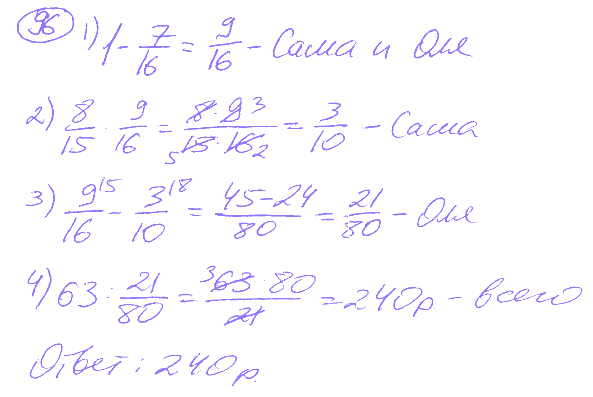 96 1) 1 - 7/16 = 9/16 - Саша и Оля
2) 8/15 · 9/16 = 8·9 3/5 15·16 2 = 3/10 - Саша
3) 9/16 15 - 3/10 18 = 45-24/80 = 21/80 - Оля
4) 63 : 21/80 = 3 63·80/21 = 240р. - всего
Ответ: 240р.